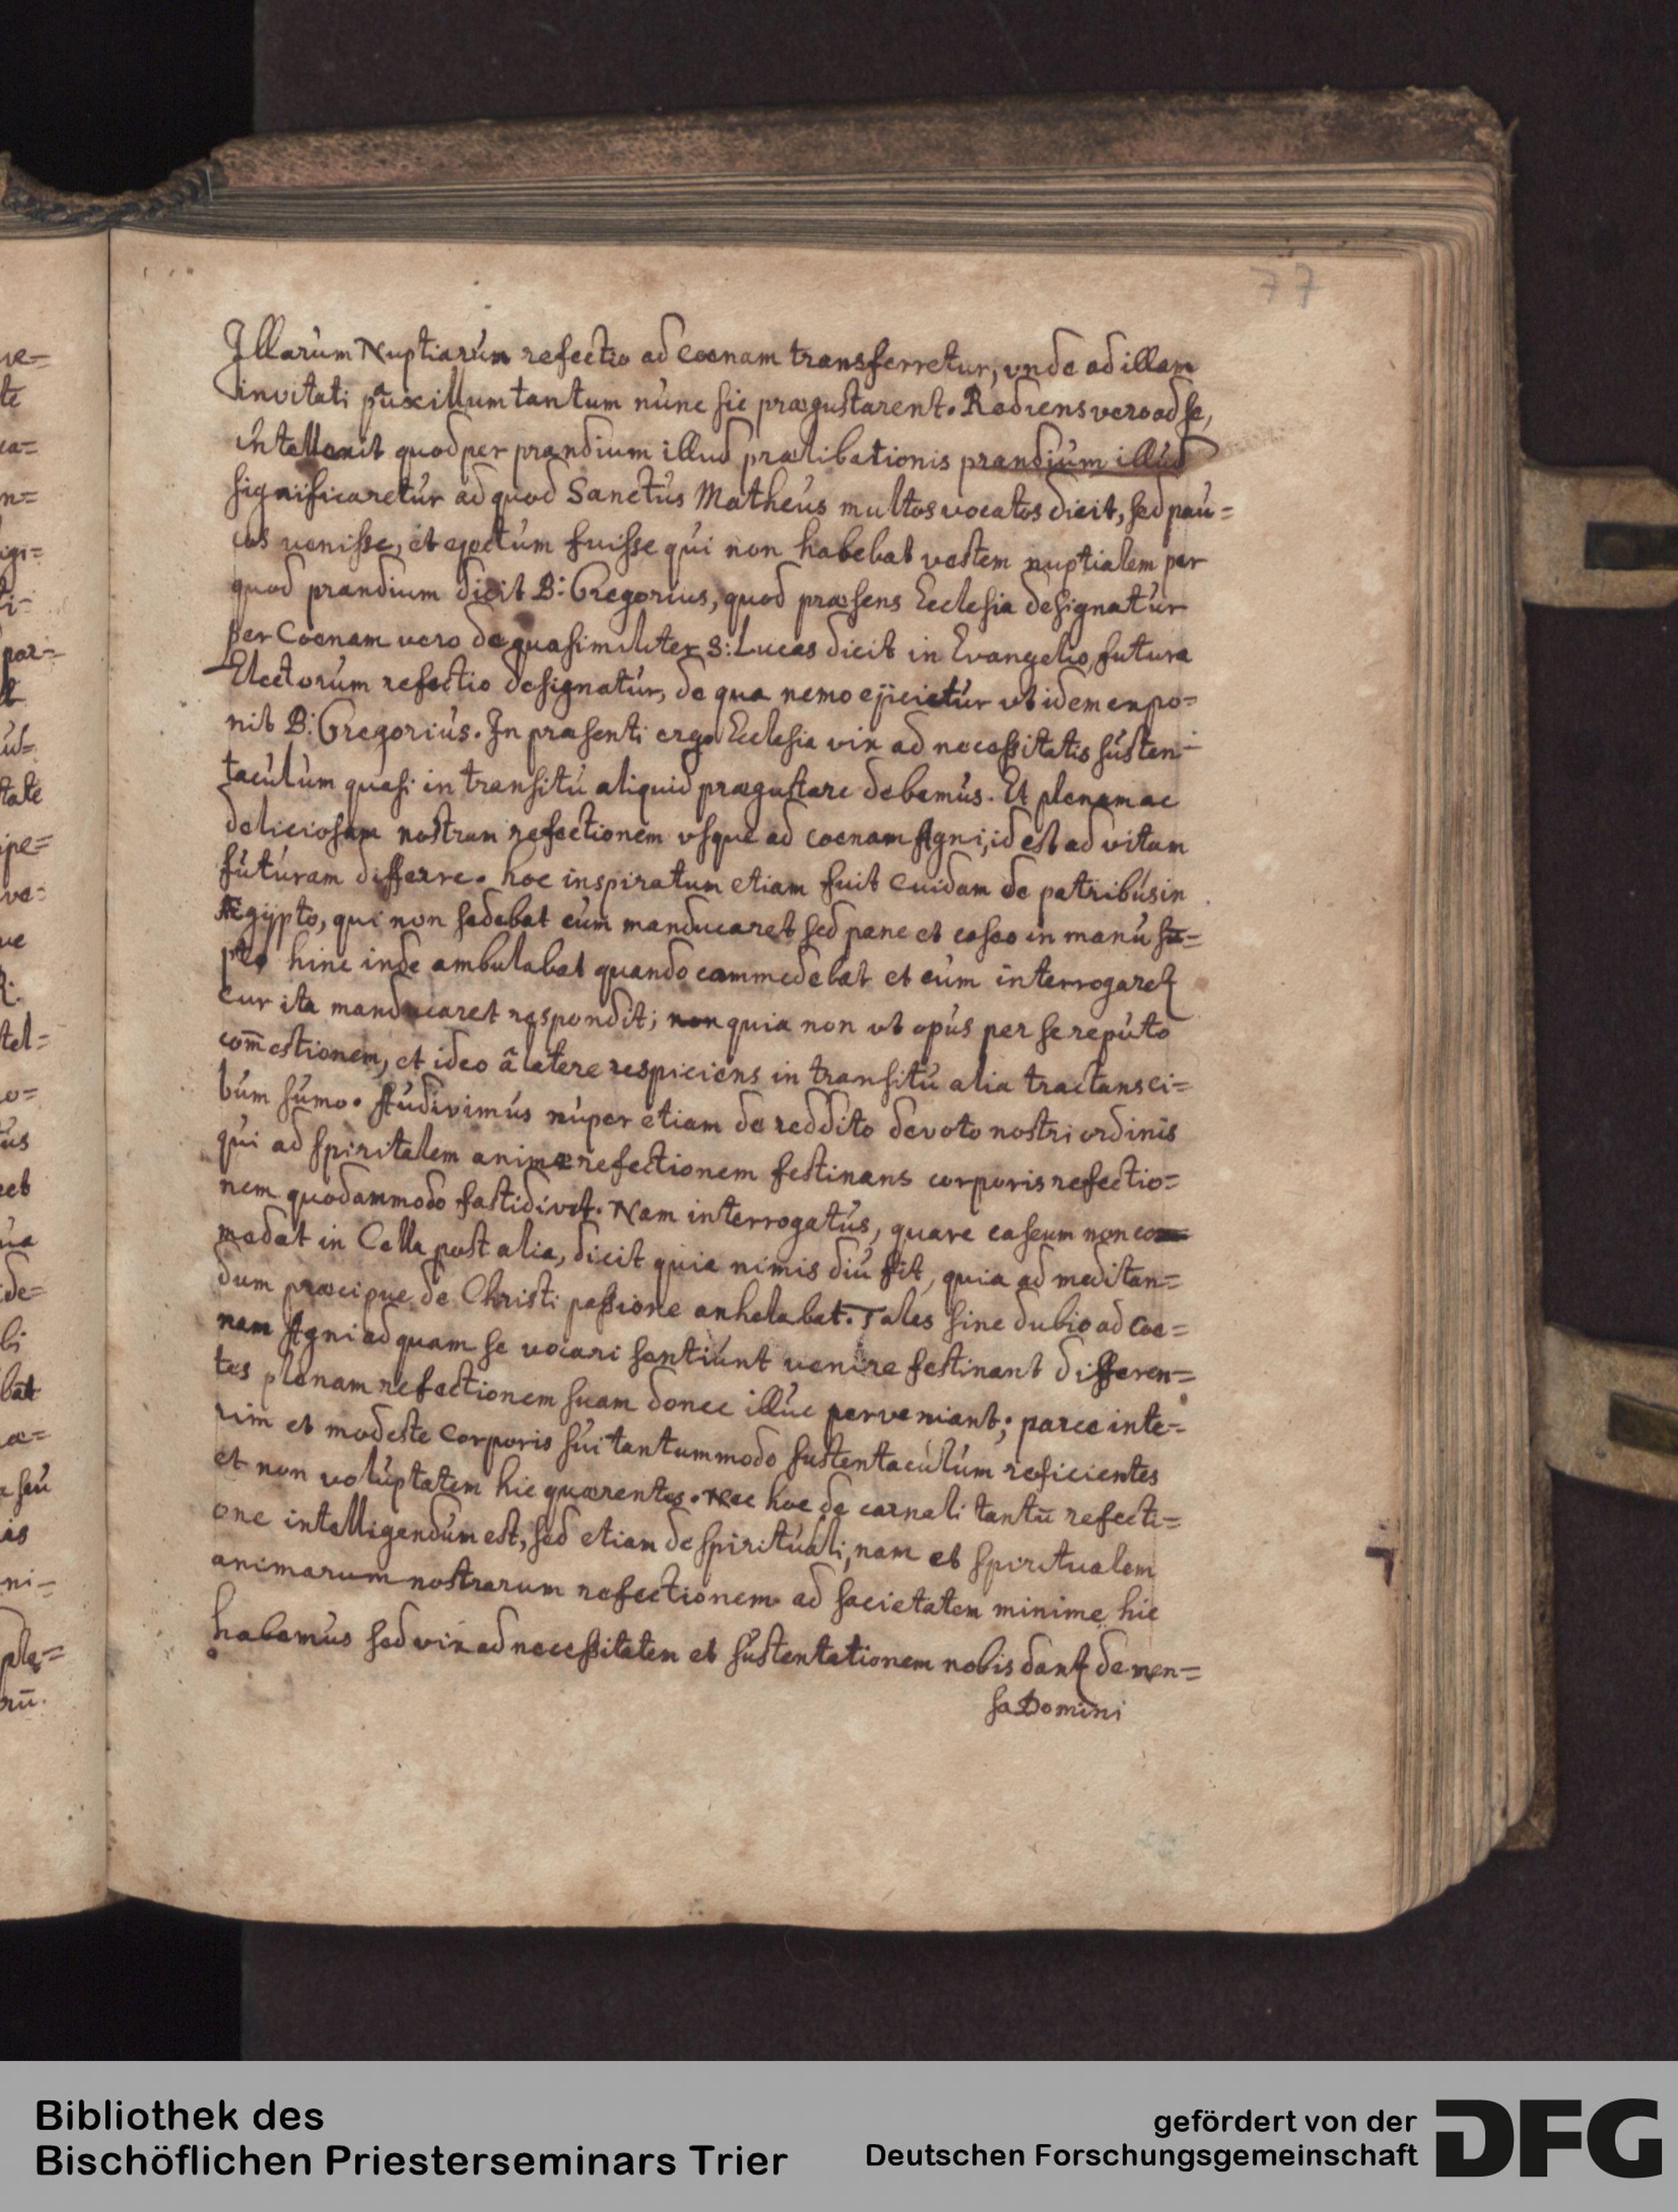 77
Illarum Nuptiarum refectio ad coenam transferretur, vnde ad illam
invitati pauxillum tantum nunc sic praegustarent. Rediens vero ad se,
intellexit quod per prandium illud praelibationis prandium illud
significaretur ad quod Sanctus Matheus multos vocatos dicit, sed pau=
cos venisse, et ejectum fuisse qui non habebat vestem nuptialem per
quod prandium dicit B: Gregorius, quod praesens Ecclesia designatur
per Coenam vero de qua similiter S: Lucas dicit in Evangelio, futura
Electorum refectio designatur, de qua nemo ejicietur vt idem expo=
nit B: Gregorius. In praesenti ergo Ecclesia vix ad necessitatis susten=
taculum quasi in transitu aliquid praegustare debemus. Et plenam ac
deliciosam nostram refectionem vsque ad coenam Agni, id est ad vitam
futuram differre. hoc inspiratum etiam fuit cuidam de patribus in
AEgijpto, qui non sedebat cum manducaret sed pane et caseo in manu su=
pto hinc inde ambulabat quando commedebat et cum interrogaret
cur ita manducaret respondit; non quia non vt opus per se reputo
com̃estionem, et ideo â latere respiciens in transitu alia tractans ci=
bum sumo. Audivimus nuper etiam de reddito devoto nostri ordinis
qui ad spiritalem animae refectionem festinans corporis refectio=
nem quodammodo fastidivit. Nam interrogatus, quare caseum non com
medat in Cella post alia, dicit quia nimis diu fit, quia ad meditan=
dum praecipue de Christi passione anhelabat. Tales sine dubio ad coe=
nam Agni ad quam se vocari sentiunt venire festinant differen=
tes plenam refectionem suam donec illuc perveniant; parce inte=
rim et modeste corporis sui tantummodo sustentaculum reficientes
et non voluptatem hic quaerentes. Nec hoc de carnali tantũ refecti=
one intelligendum est, sed etiam de spirituali, nam et spiritualem
animarum nostrarum refectionem ad sacietatem minime hic
habemus sed vix ad necessitatem et sustentationem nobis dant de men=
sa Domini
Bibliothek des
Bischöflichen Priesterseminars Trier
gefördert von der
Deutschen Forschungsgemeinschaft
DFG